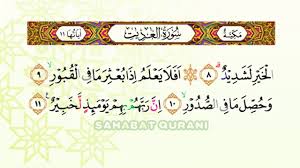 مَكِّيَّة
سُوْرَةُ الْعٰدِيٰتِ
اٰيَاتُهَا ١١
الْخَيْرِ لَشَدِيْدٌ ۗ ٨ اَفَلَا يَعْلَمُ اِذَا بُعْثِرَ مَا فِى الْقُبُوْرِ ۙ ٩
وَحُصِّلَ مَا فِى الصُّدُوْرِ ۙ ١٠ اِنَّ رَبَّهُمْ بِهِمْ يَوْمَىِٕذٍ لَّخَبِيْرٌ ࣖ ١١
SAHABAT QURANI